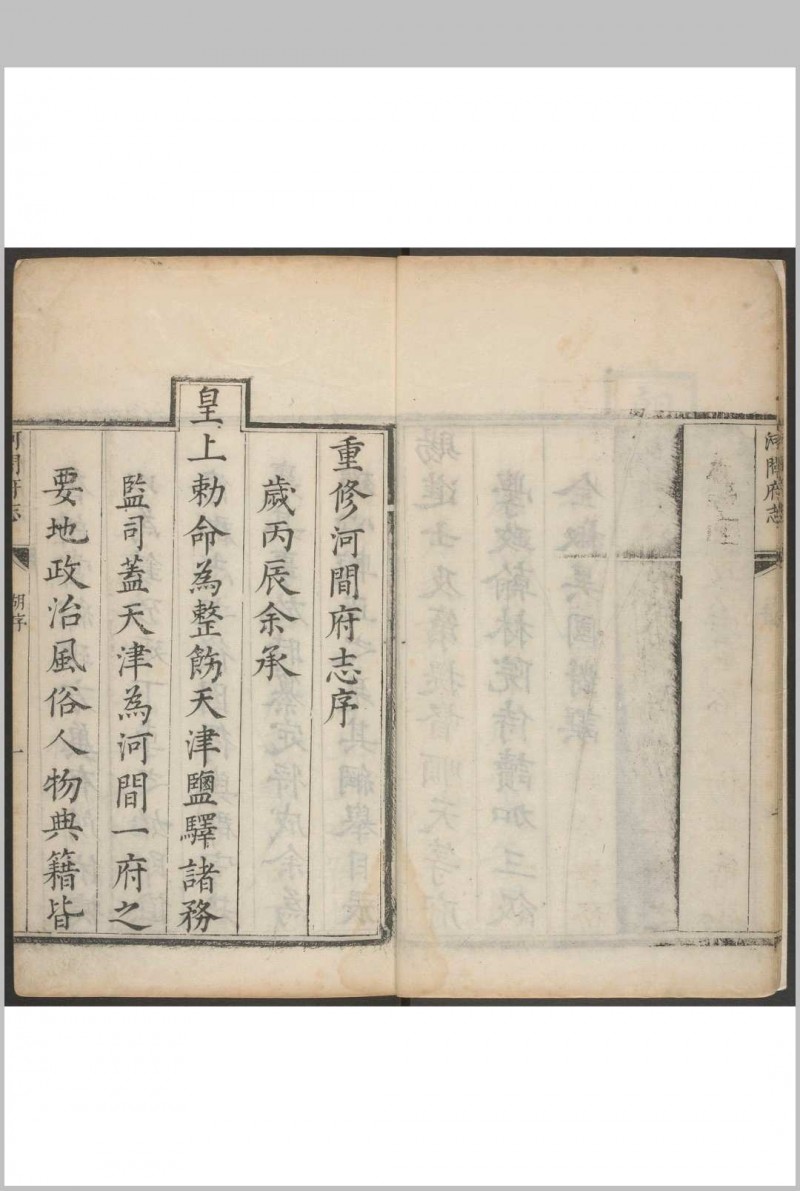 河間府志
重修河間府志序
歲丙辰余承
皇上勅命為整飭天津鹽驛諸務
監司蓋天津為河間一府之
要地政治風俗人物典籍皆
河間府志
胡序
一